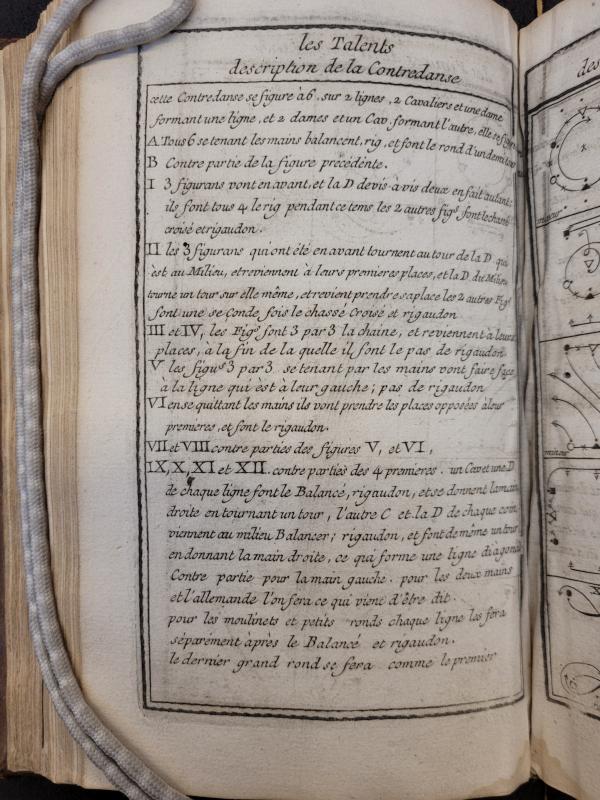 les Talents
description de la Contredanse
cette Contredanse se figure à 6. sur 2 lignes, 2 Cavaliers et une dame
formant une ligne, et 2 dames et un Cav. formant l'autre, elle se
A Tous 6 se tenant les mains balancent, rig, et font le rond d'un demi tour
B Contre partie de la figure precédente.
I 3 figurans vont en avant, et la D de vis-à-vis deux en fait autant;
ils font tous 4 le rig pendant ce tems les 2 autres figs font le
croisé et rigaudon.
II les 3 figurans qui ont été en avant tournent autour de la D. qui
èst au Milieu, et reviennent à leurs premieres places, et la D. du Milieu
tourne un tour sur elle même, et revient prendre sa place les 2 autres Figs
font une seconde fois le chassé Croisé et rigaudon
III et IV, les Figs font 3 par 3 la chaine, et reviennent à leurs
places, à la fin de la quelle il font le pas de rigaudon
V les figs 3 par 3 se tenant par les mains vont faire face
à la ligne qui èst à leur gauche; pas de rigaudon
VI en se quittant les mains ils vont prendre les places opposées à leur
premieres, et font le rigaudon.
VII et VIII contre parties des figures V, et VI,
IX, X, XI et XII. contre parties des 4 premieres. un Cav et une D.
de chaque ligne font le Balancé, rigaudon, et se donnent la main
droite en tournant un tour, l'autre C et la D de chaque
viennent au milieu Balancer; rigaudon, et font de même un tour
en donnant la main droite, ce qui forme une ligne diagonale
Contre partie pour la main gauche. pour les deux mains
et l'allemande l'on fera ce qui vient d'être dit.
pour les moulinets et petits ronds chaque ligne les fera
séparément àprès le Balancé et rigaudon.
le dernier grand rond se fera comme le premier
des
mineur
mineur